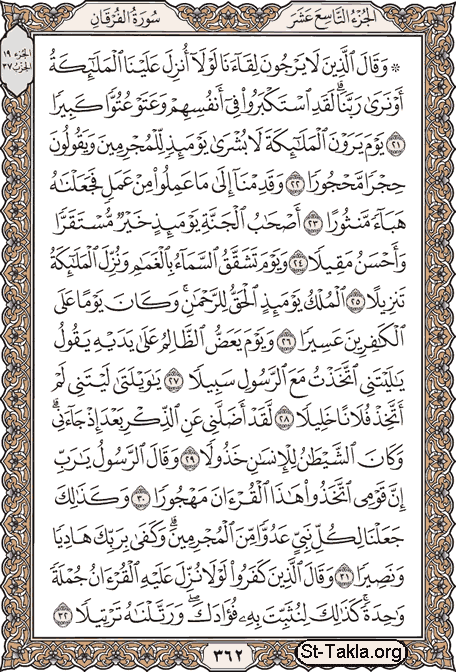 الجزء التاسع عشر
سورة الفرقان
الجزء ١٩
الحزب ٣٧
۞ وَقَالَ ٱلَّذِينَ لَا يَرْجُونَ لِقَآءَنَا لَوْلَآ أُنزِلَ عَلَيْنَا ٱلْمَلَٰٓئِكَةُ
أَوْ نَرَىٰ رَبَّنَا ۗ لَقَدِ ٱسْتَكْبَرُوا۟ فِىٓ أَنفُسِهِمْ وَعَتَوْ عُتُوًّا كَبِيرًا
٢١ يَوْمَ يَرَوْنَ ٱلْمَلَٰٓئِكَةَ لَا بُشْرَىٰ يَوْمَئِذٍ لِّلْمُجْرِمِينَ وَيَقُولُونَ
حِجْرًا مَّحْجُورًا ٢٢ وَقَدِمْنَآ إِلَىٰ مَا عَمِلُوا۟ مِنْ عَمَلٍ فَجَعَلْنَٰهُ
هَبَآءً مَّنثُورًا ٢٣ أَصْحَٰبُ ٱلْجَنَّةِ يَوْمَئِذٍ خَيْرٌ مُّسْتَقَرًّا
وَأَحْسَنُ مَقِيلًا ٢٤ وَيَوْمَ تَشَقَّقُ ٱلسَّمَآءُ بِٱلْغَمَٰمِ وَنُزِّلَ ٱلْمَلَٰٓئِكَةُ
تَنزِيلًا ٢٥ ٱلْمُلْكُ يَوْمَئِذٍ ٱلْحَقُّ لِلرَّحْمَٰنِ ۚ وَكَانَ يَوْمًا عَلَى
ٱلْكَٰفِرِينَ عَسِيرًا ٢٦ وَيَوْمَ يَعَضُّ ٱلظَّالِمُ عَلَىٰ يَدَيْهِ يَقُولُ
يَٰلَيْتَنِى ٱتَّخَذْتُ مَعَ ٱلرَّسُولِ سَبِيلًا ٢٧ يَٰوَيْلَتَىٰ لَيْتَنِى لَمْ
أَتَّخِذْ فُلَانًا خَلِيلًا ٢٨ لَّقَدْ أَضَلَّنِى عَنِ ٱلذِّكْرِ بَعْدَ إِذْ جَآءَنِى ۗ
وَكَانَ ٱلشَّيْطَٰنُ لِلْإِنسَٰنِ خَذُولًا ٢٩ وَقَالَ ٱلرَّسُولُ يَٰرَبِّ
إِنَّ قَوْمِى ٱتَّخَذُوا۟ هَٰذَا ٱلْقُرْءَانَ مَهْجُورًا ٣٠ وَكَذَٰلِكَ
جَعَلْنَا لِكُلِّ نَبِىٍّ عَدُوًّا مِّنَ ٱلْمُجْرِمِينَ ۗ وَكَفَىٰ بِرَبِّكَ هَادِيًا
وَنَصِيرًا ٣١ وَقَالَ ٱلَّذِينَ كَفَرُوا۟ لَوْلَا نُزِّلَ عَلَيْهِ ٱلْقُرْءَانُ جُمْلَةً
وَٰحِدَةً ۚ كَذَٰلِكَ لِنُثَبِّتَ بِهِۦ فُؤَادَكَ ۖ وَرَتَّلْنَٰهُ تَرْتِيلًا ٣٢
٣٦٢
St-Takla.org